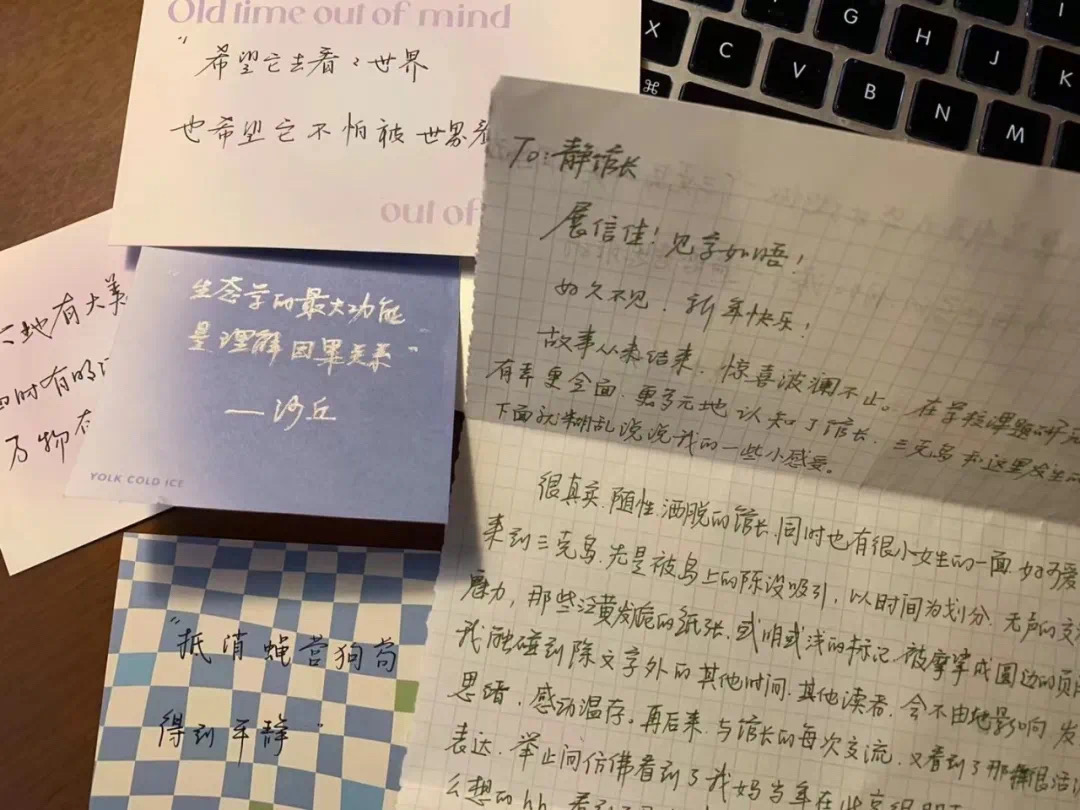 Old time out of mind
"希望它去看看世界
也希望它不怕被世界看
out of
天地有大美
四时有明
万物有
"生态学的最大功能
是理解因果关系"
—沙丘
YOLK COLD ICE
"抵消蝇营狗苟
得到平静"
To:静馆长
展信佳!见字如晤!
好久不见,新年快乐!
故事从未结束,惊喜波澜不止。在学校课题研究
有幸更全面、更多元地认知了馆长、三克鸟和这里发生的
下面就糊乱说说我的一些小感受。
很真实、随性、洒脱的馆长,同时也有很小女生的一面,好可爱
来到三克鸟,先是被鸟上的陈设吸引,以时间为划分,无声的交
魔力,那些泛黄发脆的纸张,或明或浅的标记,被摩挲成圆边的页
我触碰到除文字外的其他时间、其他读者,会不由地影响,发
思绪,感动温存。再后来,与馆长的每次交流,又看到了那种很活
表达,举止间仿佛看到了我妈当年在
么想的hh,
X C V B N M G H J K I ⌘